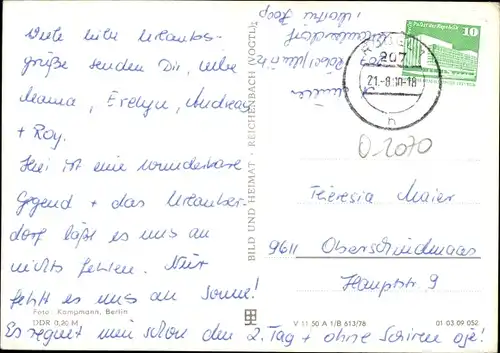 Viele liebe Urlaubs-
grüße senden Dir, liebe
Mama, Evelyn, Andreas
+ Roy.
Hier ist eine wunderbare
Gegend + das Urlauber-
dorf läßt es uns an
nichts fehlen. Nur
fehlt es uns an Sonne!
Es regnet nun schon den 2. Tag + ohne Schirm oje!
Foto: Kampmann, Berlin
DDR 0,20 M
BILD UND HEIMAT · REICHENBACH (VOGTL)
V 11 50 A 1/B 613/78
01 03 09 052
10
207
21.-8.80-18
h
O 2070
Theresia Maier
9611 Oberschindmaas
Hauptstr. 9